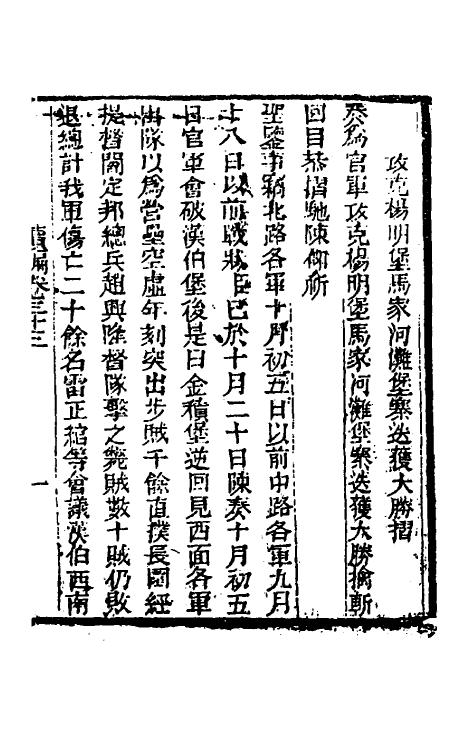 攻克楊明堡馬家河灘堡寨迭獲大勝摺
奏爲官軍攻克楊明堡馬家河灘堡寨迭獲大勝擒斬
回目恭摺馳陳仰祈
聖鑒事竊北路各軍十月初五日以前中路各軍九月
十八日以前戰狀臣已於十月二十日陳奏十月初五
日官軍會破漢伯堡後是日金積堡逆回見西面各軍
出隊以爲營壘空虛午刻突出步賊千餘直撲長圍經
提督閻定邦總兵趙興隆督隊擊之斃賊數十賊仍敗
退總計我軍傷亡二十餘名雷正綰等會議漢伯西南
卷三十三
一